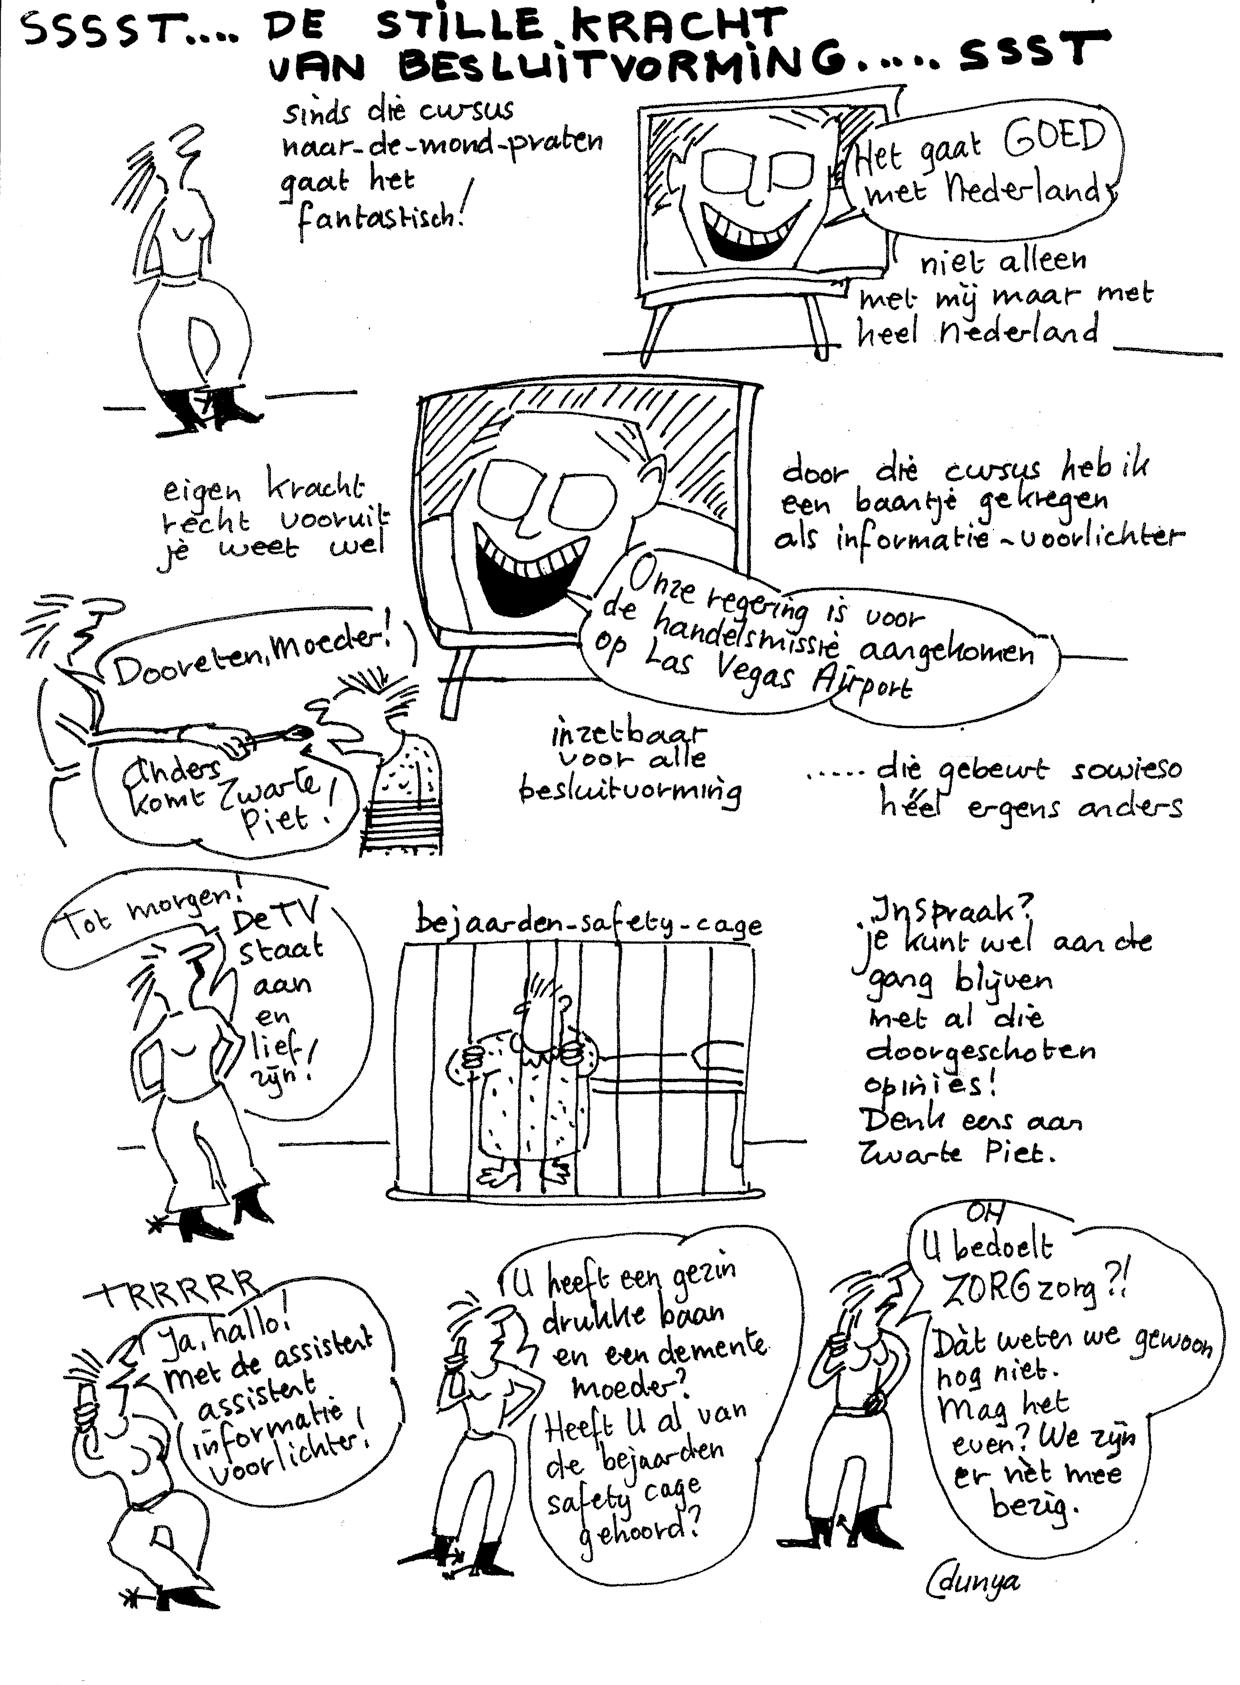 SSSST.... DE STILLE KRACHT
VAN BESLUITVORMING..... SSST
sinds die cursus
naar-de-mond-praten
gaat het
fantastisch!
Het gaat GOED
met Nederland
niet alleen
met mij maar met
heel Nederland
eigen kracht
recht vooruit
je weet wel
Onze regering is voor
de handelsmissie aangekomen
op Las Vegas Airport
door die cursus heb ik
een baantje gekregen
als informatie-voorlichter
Dooreten, Moeder!
anders
komt Zwarte
Piet!
inzetbaar
voor alle
besluitvorming
..... die gebeurt sowieso
héél ergens anders
Tot morgen!
De TV
staat
aan
en
lief
zijn!
bejaarden-safety-cage
Inspraak?
je kunt wel aan de
gang blijven
met al die
doorgeschoten
opinies!
Denk eens aan
Zwarte Piet.
TRRRRR
Ja, hallo!
met de assistent
assistent
informatie
voorlichter!
U heeft een gezin
drukke baan
en een demente
moeder?
Heeft U al van
de bejaarden
safety cage
gehoord?
OH
U bedoelt
ZORG zorg?!
Dàt weten we gewoon
nog niet.
Mag het
even? We zijn
er nèt mee
bezig.
dunya